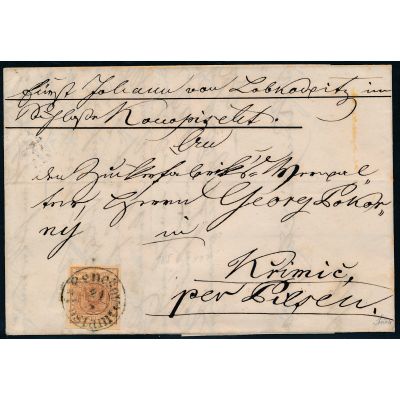 Fürst Johann von Lobkowitz im
Schloße Konopischt.
An
den Zuckerfabriks Verwal
ter, Herrn Georg Pokor
ny in
Křimic,
per Pilsen.